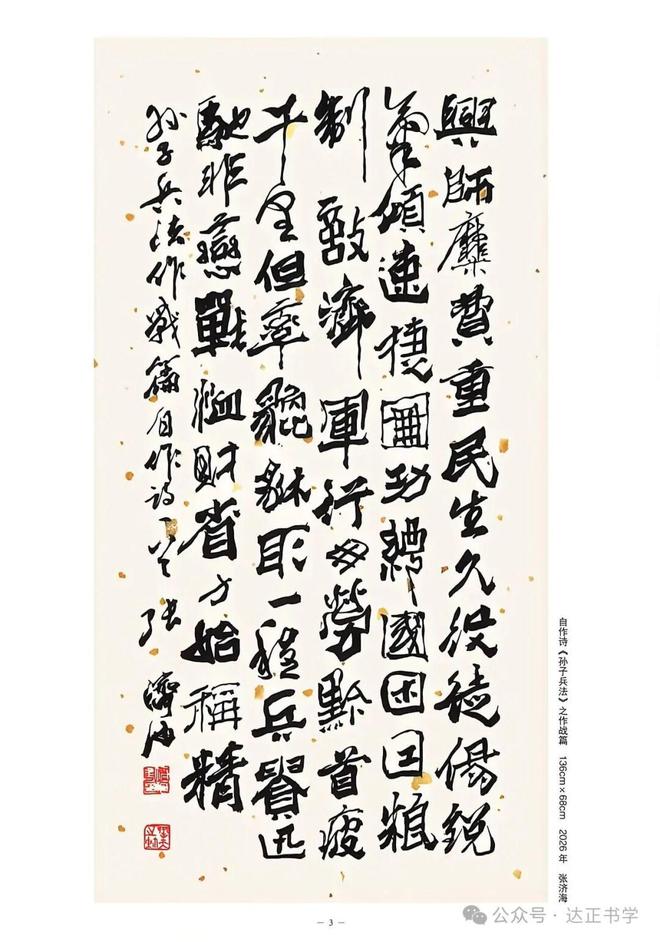 興師糜費重民生久役徒傷銳
氣傾速捷圖功紓國困因糧
制敵濟軍行毋勞黔首疲
千里但率貔貅取一程兵貴迅
馳非戀戰恤財省力始稱精
孫子兵法作戰篇自作詩一首 張濟海
自作诗《孙子兵法》之作战篇 136cm×68cm 2026年 张济海
— 3 —
公众号·达正书学